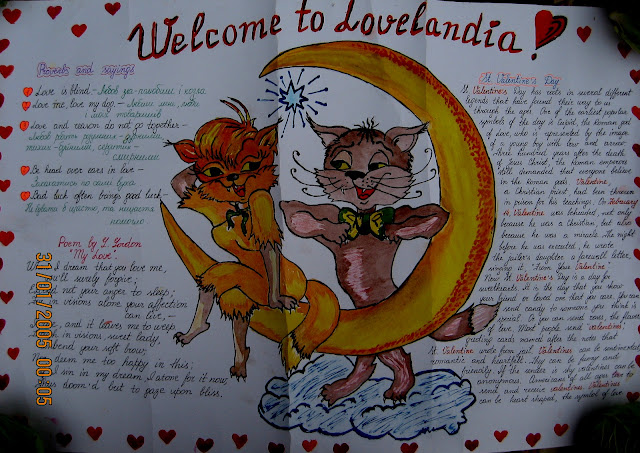 Welcome to Lovelandia!
Proverbs and sayings
Love is blind.-
Love me, love my dog -
Love and reason do not go together -
Be head over ears in love -
Bad luck often brings good luck -
Poem by G. Gordon
"My Love"
I dream that you love me,
surely forgive;
not your anger to sleep;
in visions alone your affection
can live, -
and it leaves me to weep.
in visions sweet lady,
bend your soft brow,
deem me too happy in this;
sin in my dream, I atone for it now,
doom'd but to gaze upon bliss.
St Valentine's Day
St. Valentine's Day has roots in several different
legends that have found their way to us
through the ages. One of the earliest popular
symbols of the day is Cupid, the Roman god
of Love, who is represented by the image
of a young boy with bow and arrow.
three hundred years after the death
of Jesus Christ, the Roman emperors
still demanded that everyone believe
in the Roman gods. Valentine,
a Christian priest had been thrown
in prison for his teachings. On February
14, Valentine was beheaded, not only
because he was a Christian, but also
because he was a miracle. The night
before he was executed, he wrote
the jailer's daughter a farewell letter,
signing it "From Your Valentine".
Now St. Valentine's Day is a day for
sweethearts. It is the day that you show
your friend or loved one that you care. You can
send candy to someone you think is
special. Or you can send roses, the flower
of love. Most people send "valentines",
greeting cards named after the notes that
St. Valentine wrote from jail. Valentines can be sentimental,
romantic and heartfelt. They can be funny and
friendly. If the sender is shy valentines can be
anonymous. Americans of all ages love to
send and receive valentines. Valentines
can be heart shaped, the symbol of love
31/01/2005 00:05